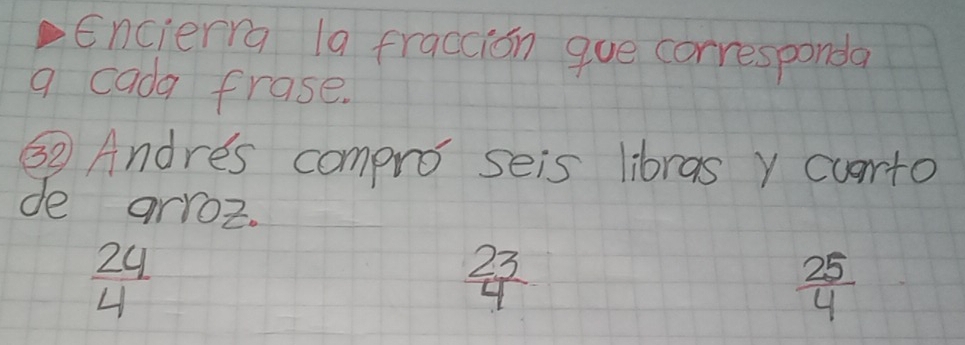 ▶Encierra la fracción que corresponda
a cada frase.
32 Andrés compró seis libras y cuarto
de arroz.
24/4 23/4 25/4